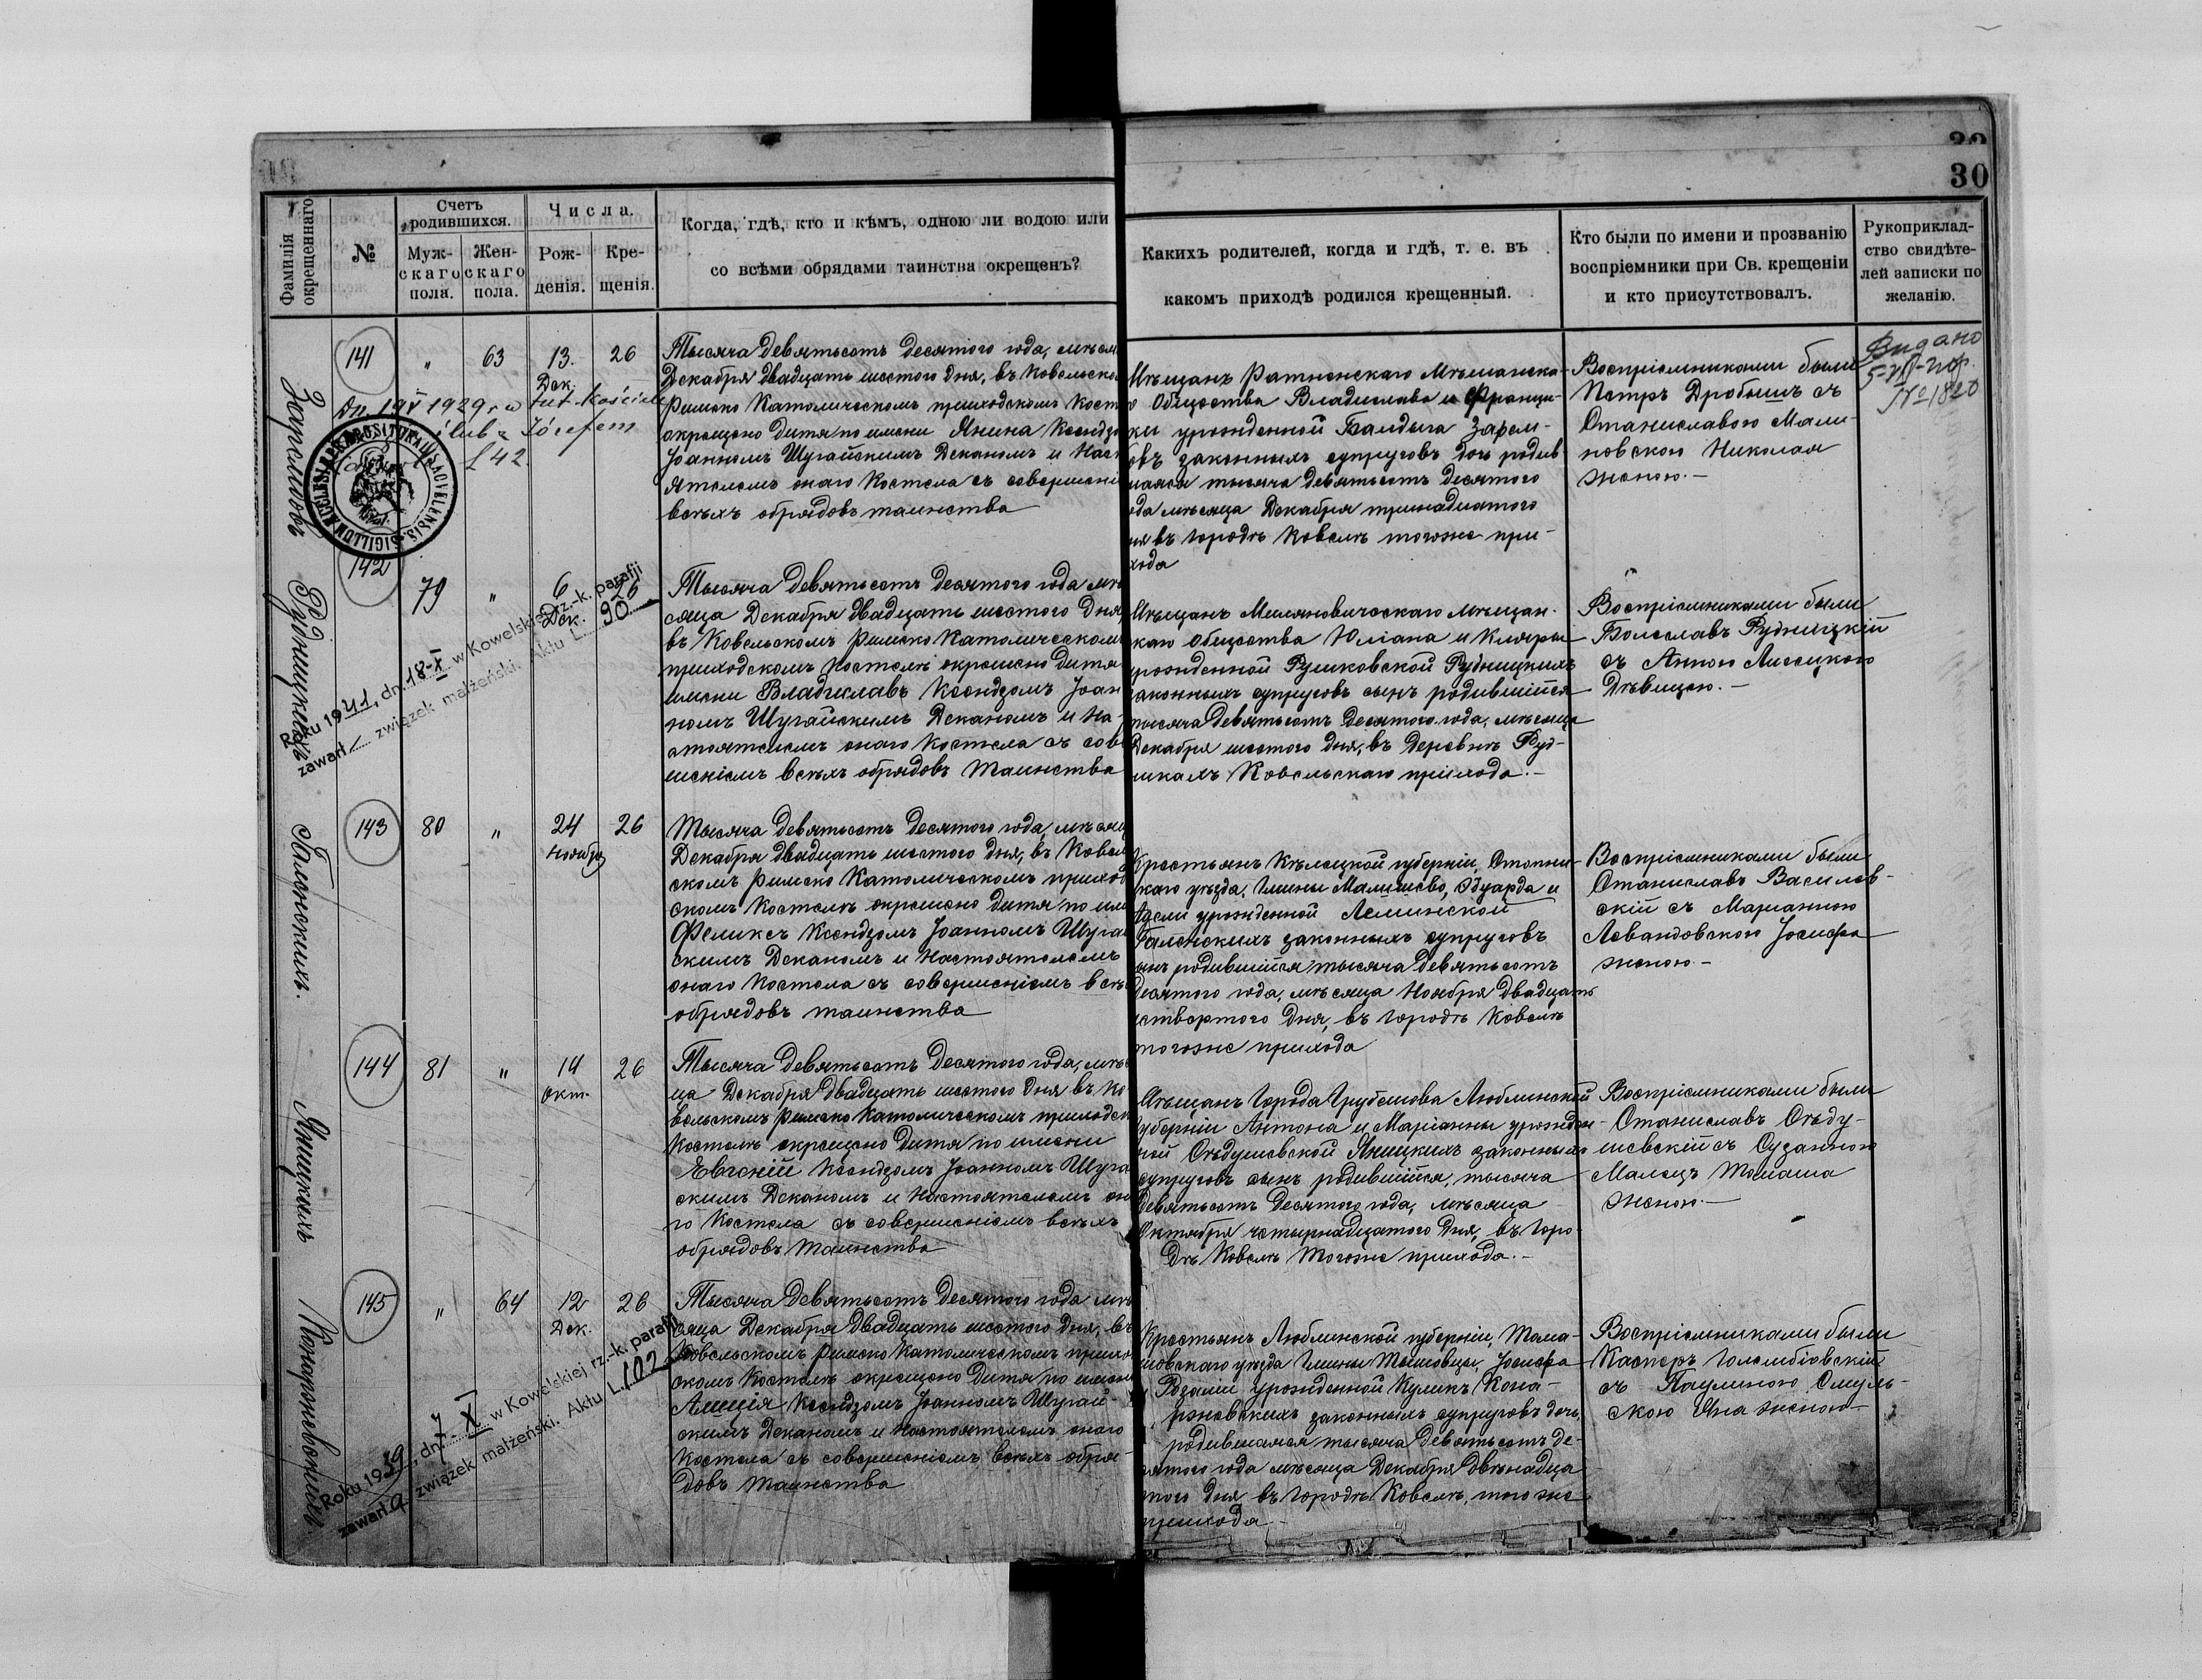 30
Фамилія окрещеннаго
№
Счетъ родившихся.
Муж-скаго пола.
Жен-скаго пола.
Числа.
Рож-денія.
Кре-щенія.
Когда, гдѣ, кто и кѣмъ, одною ли водою или
со всѣми обрядами таинства окрещенъ?
Какихъ родителей, когда и гдѣ, т. е. въ
какомъ приходѣ родился крещенный.
Кто были по имени и прозванію
воспріемники при Св. крещеніи
и кто присутствовалъ.
Рукоприклад-
ство свидѣте-
лей записки по
желанію.
141 " 63 13. Дек. 26
Dn. 19 V 1929 r. w tut. kościele
ślub z Józefem
L 42
Тысяча девятьсотъ десятого года, мѣся
Декабря двадцать шестого дня, въ Ковельско
Римско Католическомъ приходскомъ Кост
окрещено дитя по имени Янина Ксендзо
Іоанномъ Шугайскимъ Деканомъ и Наст
ятелемъ онаго Костела съ совершені
всѣхъ обрядовъ таинства
Мѣщанъ Ратненскаго Мѣщанска-
о Общества Владислава и Франци-
ки урожденной Балдыга Зарем-
овъ законныхъ супруговъ дочь родив
шаяся тысяча девятьсотъ десятого
ода мѣсяца Декабря тринадцатого
ня въ городѣ Ковелѣ тогоже при-
хода
Воспріемниками были
Петръ Дробышъ съ
Станиславою Мали-
новскою Николая
женою.-
Видано
№ 1820
142
Рудницкихъ
79 " 6 Дек. 26
Roku 1941, dn. 18-X w Kowelskiej rz.-k. parafji
zawarł związek małżeński. Aktu L. 90
Тысяча девятьсотъ десятого года мѣ
сяца Декабря двадцать шестого дня
въ Ковельскомъ Римско Католическомъ
приходскомъ Костелѣ окрещено дитя
имени Владиславъ Ксендзомъ Іоан
номъ Шугайскимъ Деканомъ и На-
стоятелемъ онаго Костела съ сове
шеніемъ всѣхъ обрядовъ Таинства
Мѣщанъ Миляновическаго мѣщан-
каго общества Юліана и Кляры
урожденной Рушковской Рудницкихъ
законныхъ супруговъ сынъ родившійся
тысяча девятьсотъ десятого года, мѣсяца
Декабря шестого дня, въ деревнѣ Руд-
никахъ Ковельскаго прихода.-
Воспріемниками были
Болеславъ Рудницкій
съ Анною Лисецкою
Дѣвицею.-
143
80 " 24 Ноября 26
Тысяча девятьсотъ десятого года, мѣсяц
Декабря двадцать шестого дня, въ Ковел
скомъ Римско Католическомъ приход
скомъ Костелѣ окрещено дитя по име
Феликсъ Ксендзомъ Іоанномъ Шуга
скимъ Деканомъ и Настоятелемъ
онаго Костела съ совершеніемъ всѣ
обрядовъ таинства
Крестьянъ Кѣлецкой губерніи, Стопни-
каго уѣзда, Гмины Малишево, Эдуарда и
Адели урожденной Лешинской
законныхъ супруговъ
ынъ родившійся тысяча девятьсотъ
десятого года, мѣсяца Ноября двадцать
етвертого дня, въ городѣ Ковелѣ
тогоже прихода
Воспріемниками были
Станиславъ Василев-
скій съ Маріанною
Левандовскою Іосифа
женою.-
144
Яницкихъ
81 " 14 Окт. 26
Тысяча девятьсотъ десятого года, мѣс
ца Декабря двадцать шестого дня въ Ко
вельскомъ Римско Католическомъ приходск
Костелѣ окрещено дитя по имени
Евгеній Ксендзомъ Іоанномъ Шуга
скимъ Деканомъ и Настоятелемъ он
го Костела съ совершеніемъ всѣхъ
обрядовъ таинства
Мѣщанъ города Грубешова Люблинской
губерніи Антона и Маріанны урожден-
ной Сѣдушевской Яницкихъ законныхъ
супруговъ сынъ родившійся, тысяча
девятьсотъ десятого года, мѣсяца
Октября четырнадцатого дня, въ горо-
дѣ Ковелѣ тогоже прихода.-
Воспріемниками были
Станиславъ Сѣду-
шевскій съ Сузанною
Малецъ Томаша
женою.-
145
" 64 12 Дек. 26
Roku 1939, dn. 7-X w Kowelskiej rz.-k. parafji
zawarła związek małżeński. Aktu L. 102
Тысяча девятьсотъ десятого года мѣ
сяца Декабря двадцать шестого дня, въ
Ковельскомъ Римско Католическомъ прихо
скомъ Костелѣ окрещено дитя по имени
Алиція Ксендзомъ Іоанномъ Шугай-
скимъ Деканомъ и Настоятелемъ онаго
Костела съ совершеніемъ всѣхъ обря-
довъ таинства
Крестьянъ Люблинской губерніи, Тома-
шовскаго уѣзда Гмины Тышовцы, Іосифа
Розаліи урожденной Куликъ Кона-
законныхъ супруговъ дочь,
родившаяся тысяча девятьсотъ де-
сятого года мѣсяца Декабря двѣнадца
того дня въ городѣ Ковелѣ, того же
прихода-
Воспріемниками были
Касперъ Голембіовскій
съ Паулиною Смуль-
скою Яна женою-